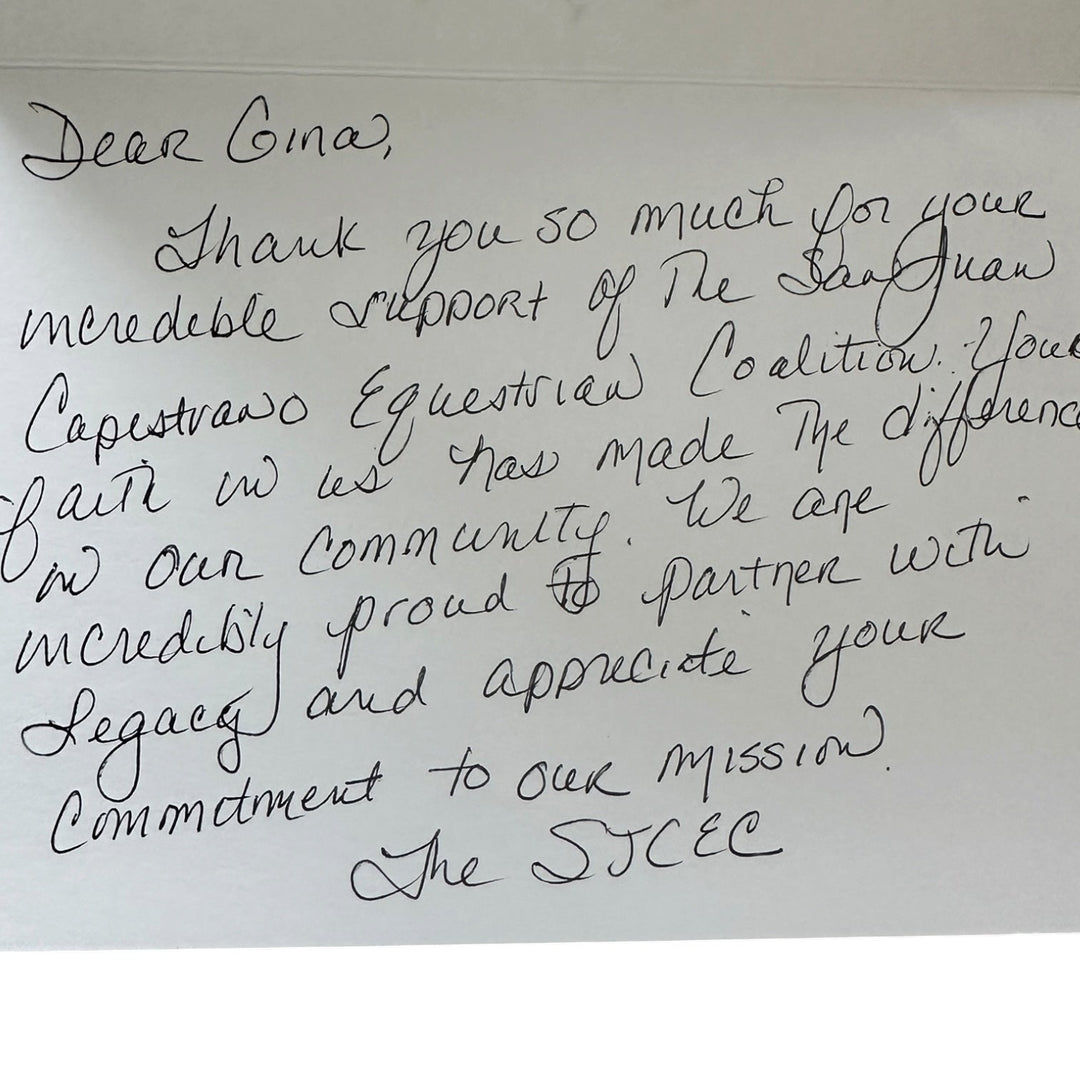 Dear Gina,
Thank you so much for your
incredible support of The San Juan
Capistrano Equestrian Coalition. Your
faith in us has made The difference
in our community. We are
incredibly proud to partner with
Legacy and appreciate your
Commitment to our mission.
The SJCEC